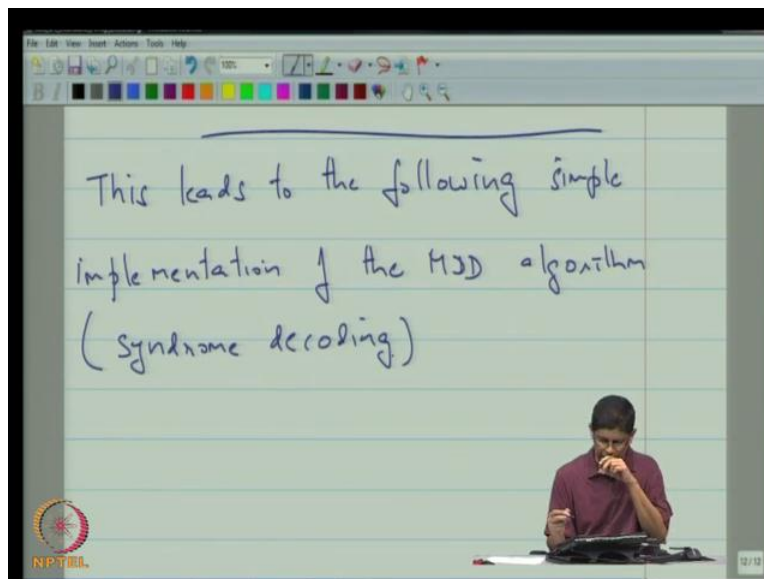 File Edit View Insert Actions Tools Help
100%
B I
This leads to the following simple
implementation of the MDD algorithm
(syndrome decoding)
NPTEL
12/13